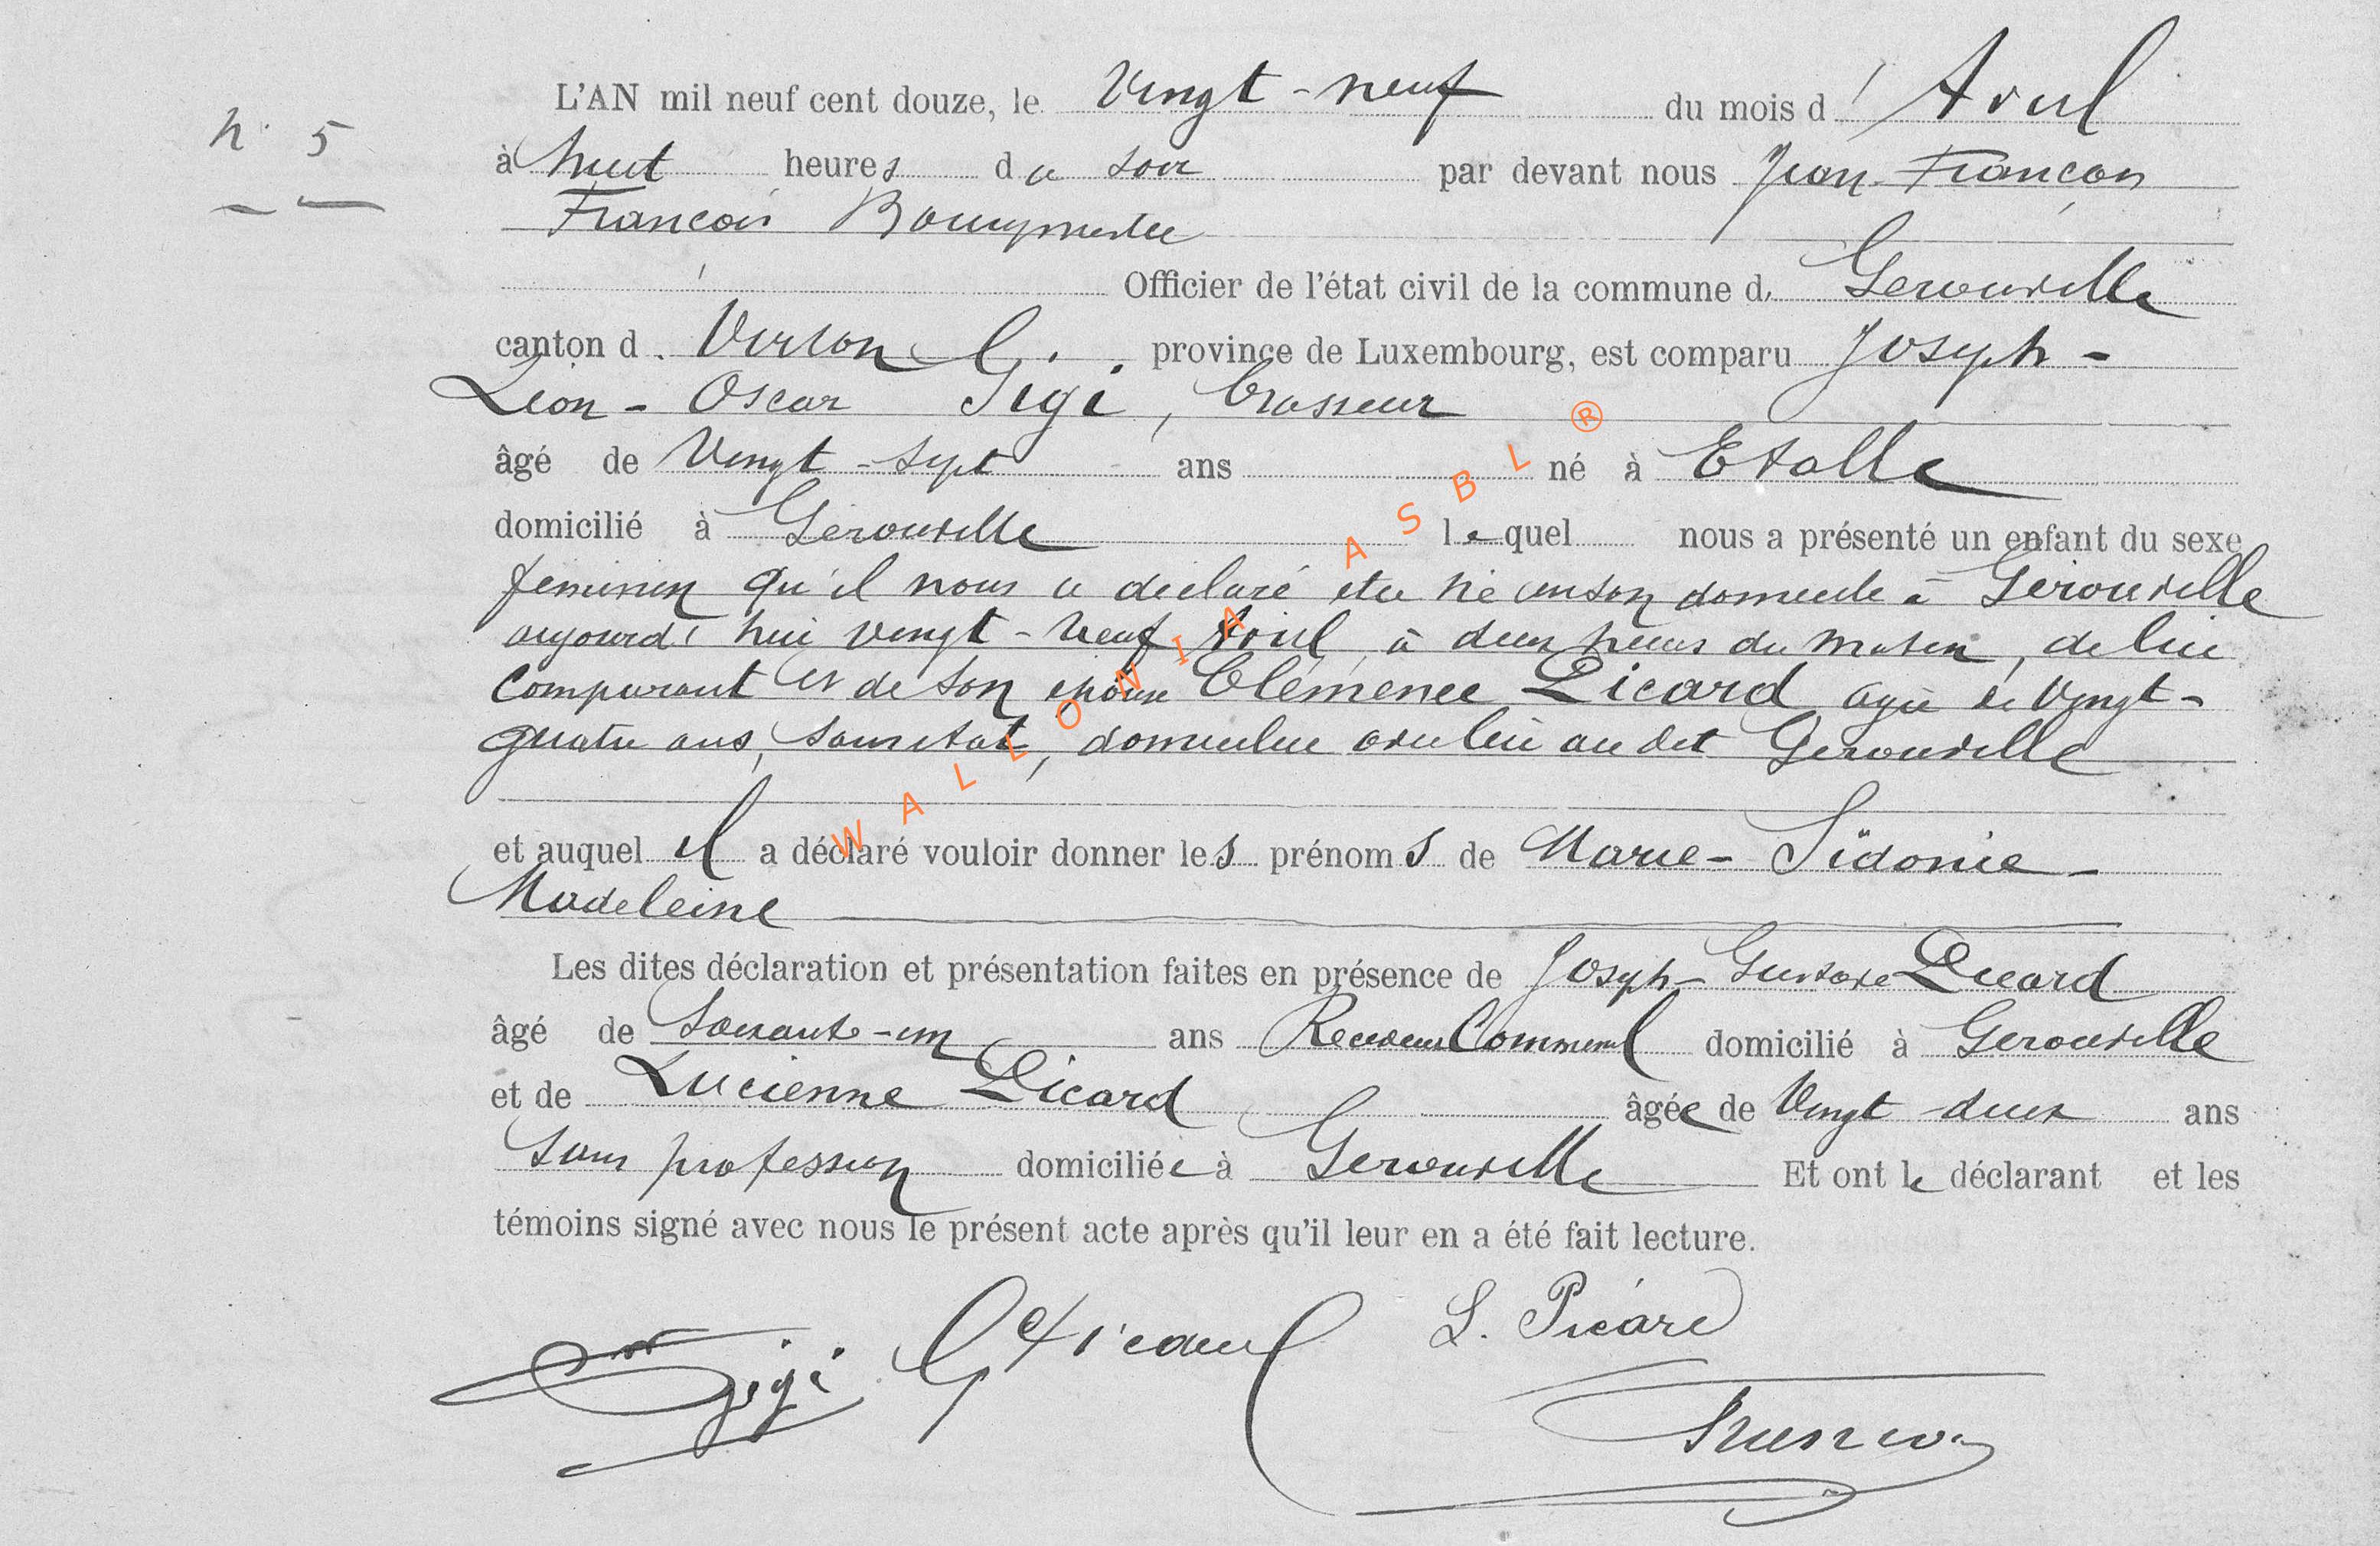 L'AN mil neuf cent douze, le Vingt-neuf du mois d' Avril
n° 5
à huit heures du soir par devant nous Jean-François
François Bourgmestre
Officier de l'état civil de la commune de Gerouville
canton de Virton province de Luxembourg, est comparu Joseph-
Léon-Oscar Gigi, brasseur
âgé de Vingt-sept ans né à Etalle
domicilié à Gérouville lequel nous a présenté un enfant du sexe
feminin qu'il nous a déclaré etre né en son domicile à Gérouville
aujourd'hui vingt-neuf Avril, à deux heures du matin, de lui
comparant et de son épouse Clémence Picard agée de Vingt-
quatre ans, sans état, domiciliée avec lui au dit Gerouville
et auquel il a déclaré vouloir donner les prénoms de Marie-Sidonie-
Madeleine
Les dites déclaration et présentation faites en présence de Joseph-Gustave Picard
âgé de Soixante-un ans Receveur Communal domicilié à Gerouville
et de Lucienne Picard âgée de Vingt deux ans
Sans profession domiciliée à Gerouville Et ont le déclarant et les
témoins signé avec nous le présent acte après qu'il leur en a été fait lecture.
Gigi G Picard L. Picard
François
WALLONIA ASBL ®